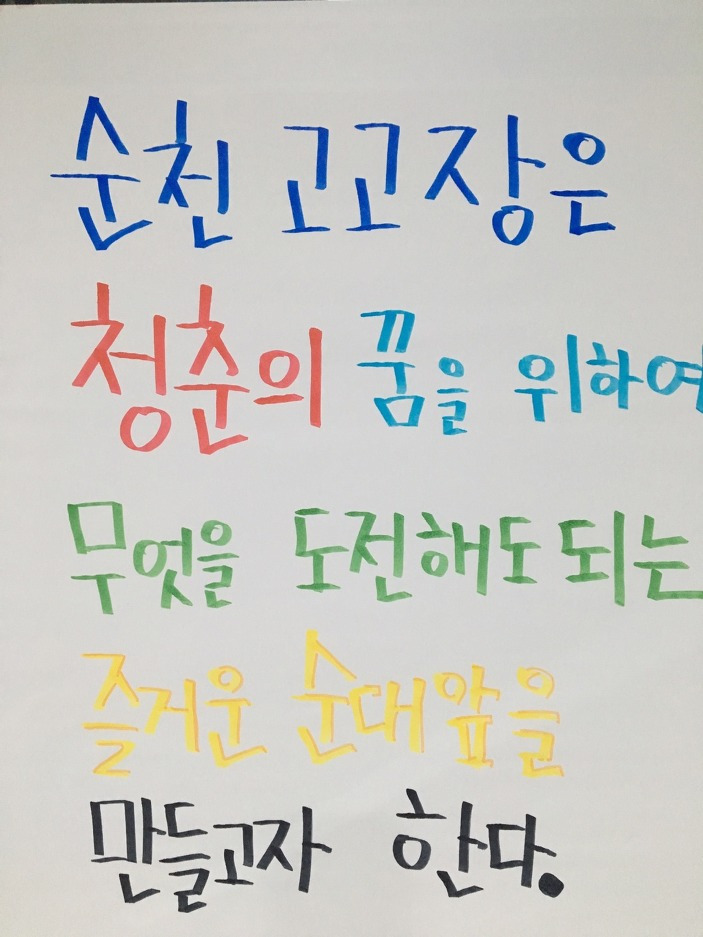 순천 고고장은
청춘의 꿈을 위하여
무엇을 도전해도 되는
즐거운 순대앞을
만들고자 한다.